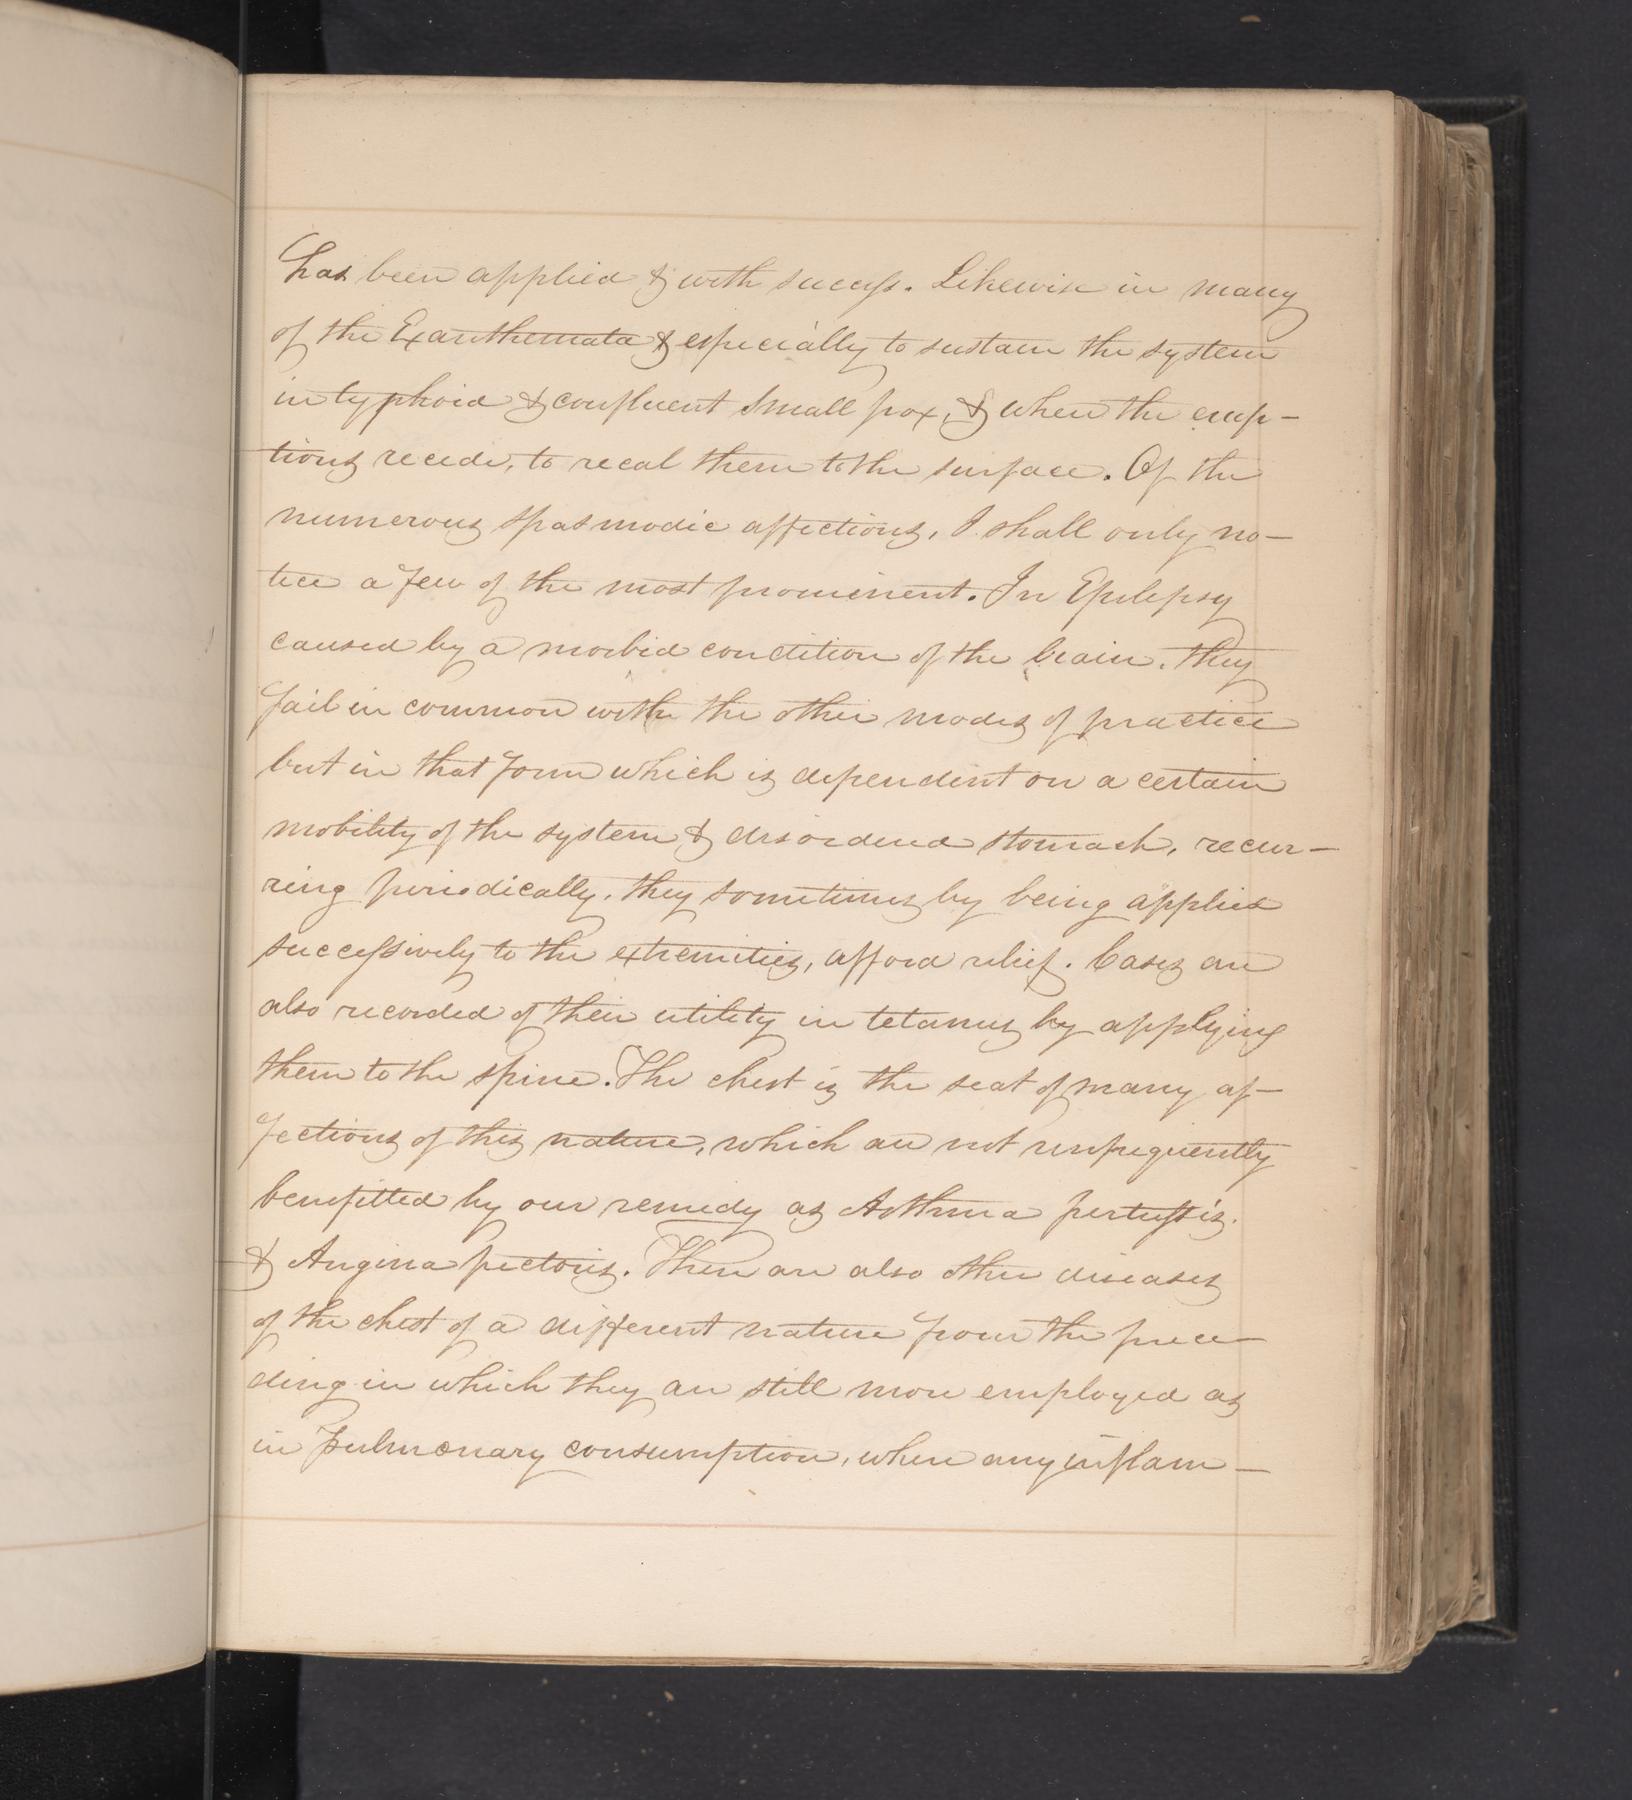 has been applied & with success. Likewise in many
of the Exanthemata & especially to sustain the system
in typhoid & confluent Small pox, & when the erup-
tions recede, to recal them to the surface. Of the
numerous spasmodic affections, I shall only no-
tice a few of the most prominent. In Epilepsy
caused by a morbid condition of the brain, they
fail in common with the other modes of practice
but in that form which is dependent on a certain
mobility of the system & disordered stomach, recur-
ring periodically, they sometimes by being applied
successively to the extremities, afford relief. Cases are
also recorded of their utility in tetanus by applying
them to the spine. The chest is the seat of many af-
fections of this nature, which are not unfrequently
benefitted by our remedy as Asthma pertussis.
& Angina pectoris. There are also other diseases
of the chest of a different nature from the prece
ding in which they are still more employed as
in Pulmonary consumption, when any inflam-